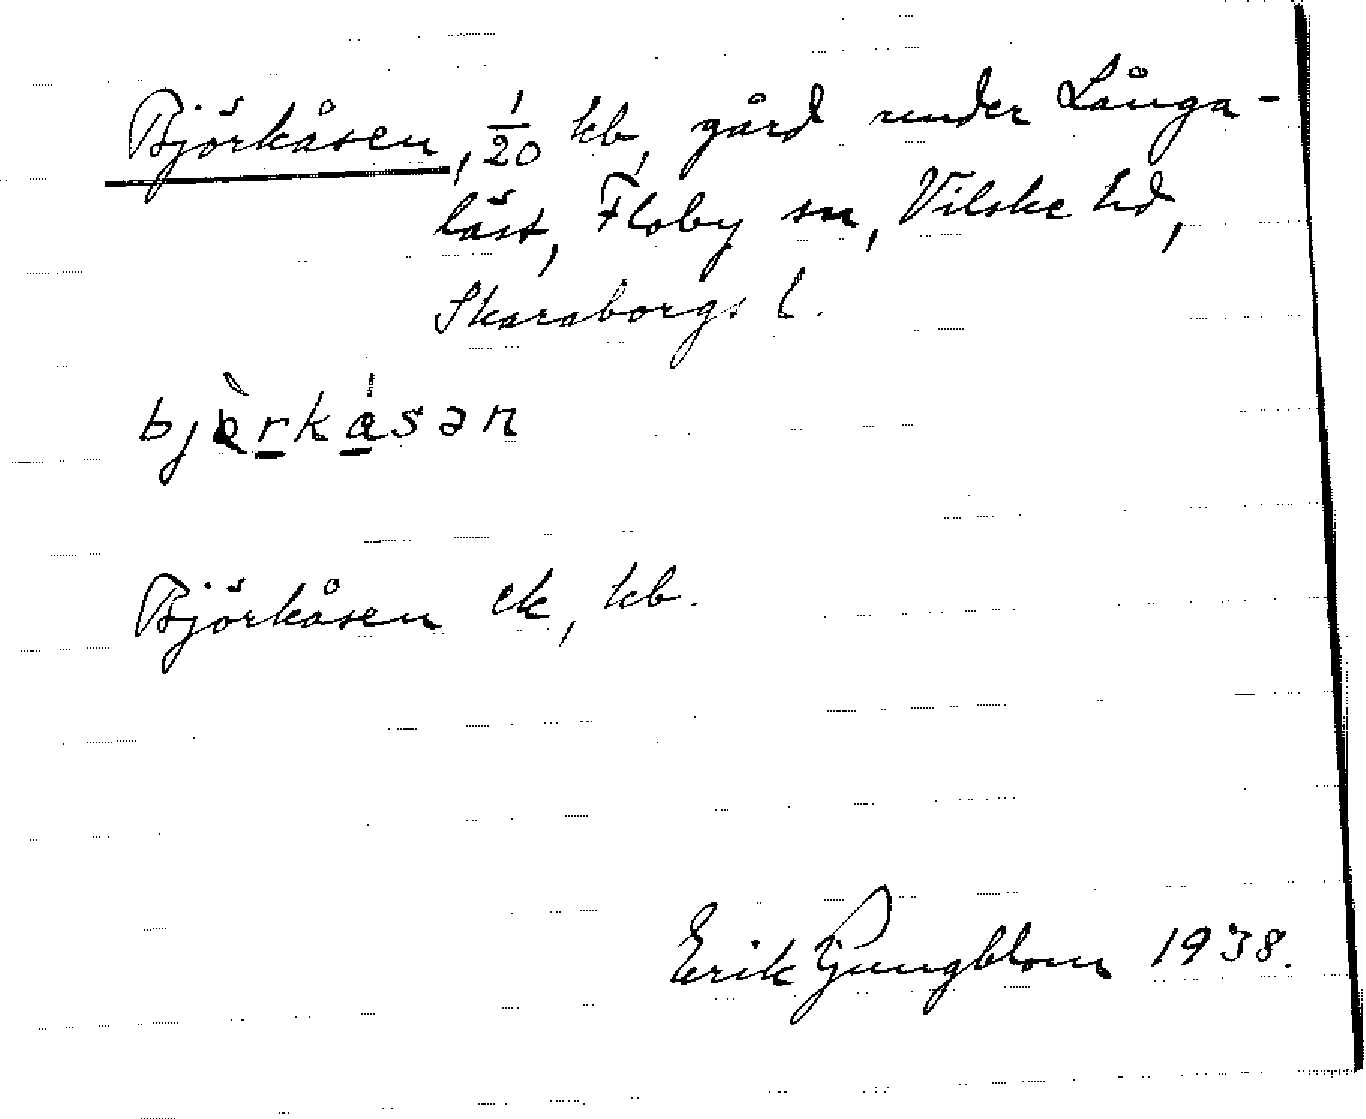 Björkåsen, 1/20 kb, gård under Långa-
läst, Floby sn, Vilske hd,
Skaraborgs l.
bjə̀rkásən
Björkåsen ek, kb.
Erik Ljungblom 1938.